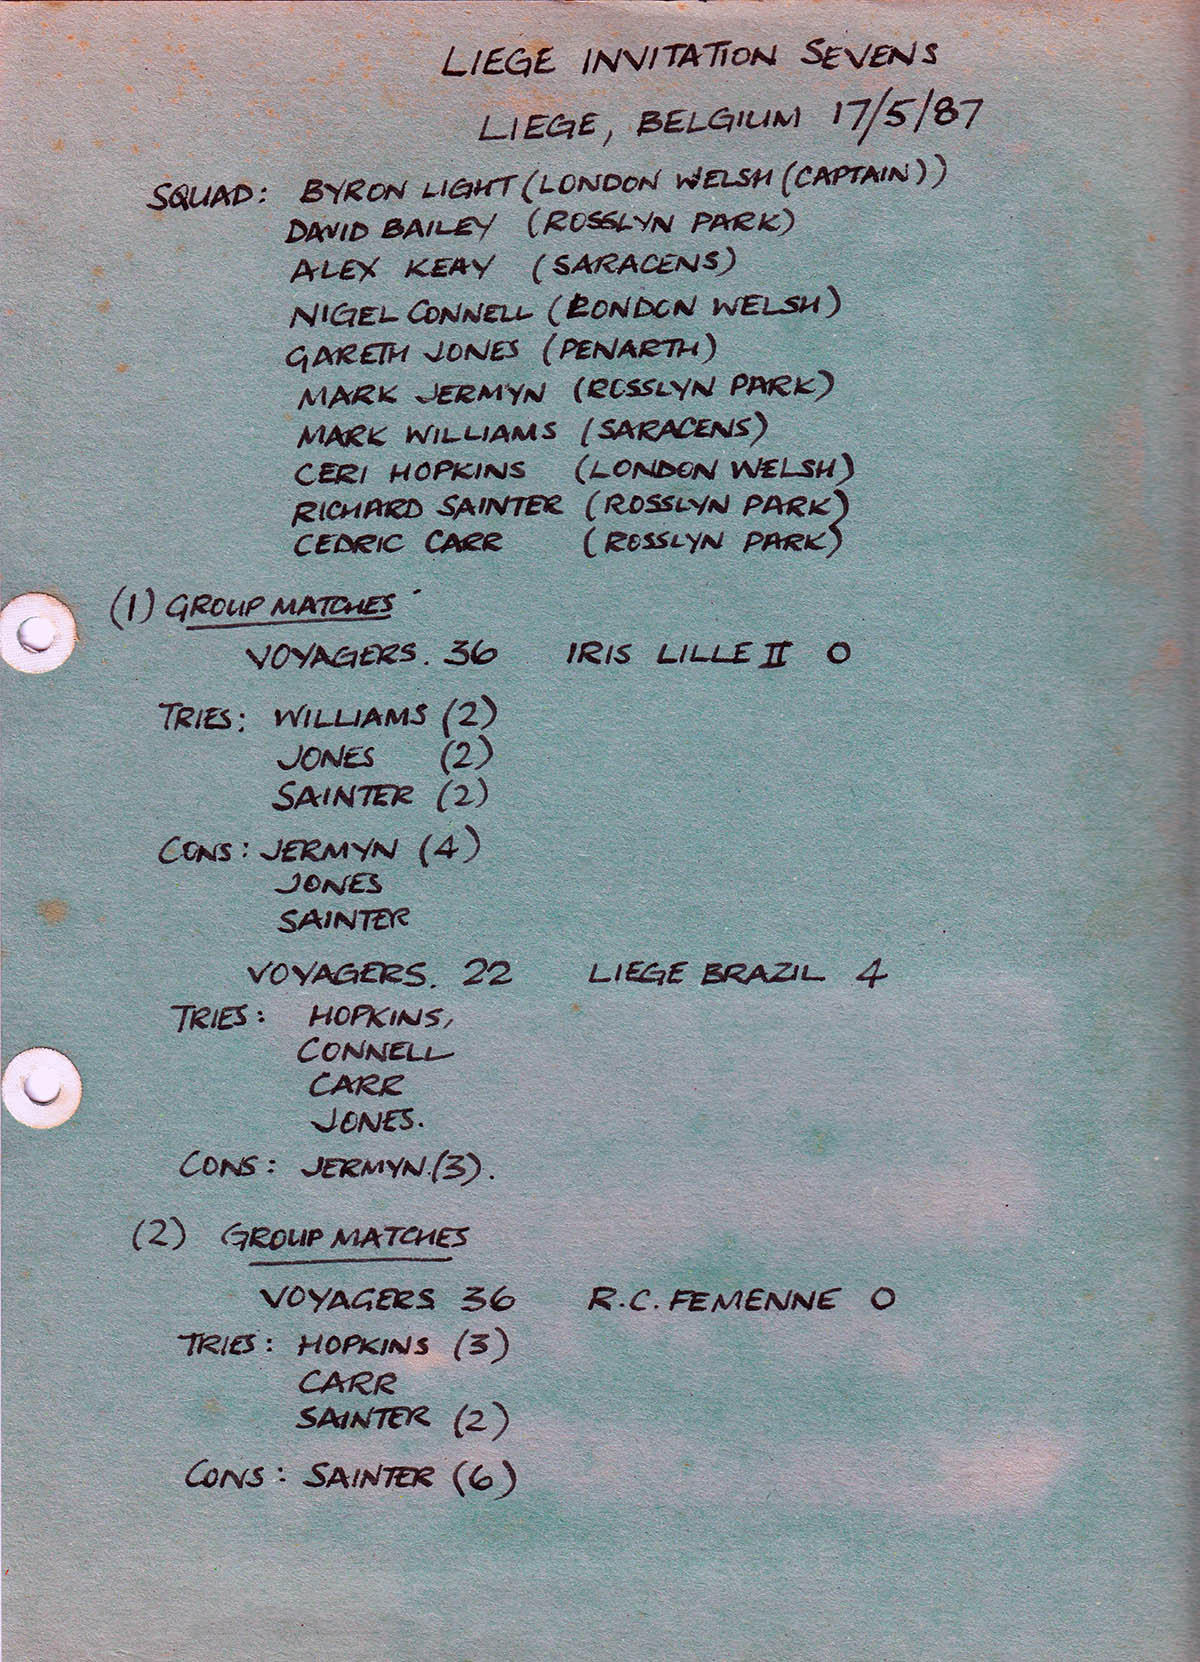 LIEGE INVITATION SEVENS
LIEGE, BELGIUM 17/5/87
SQUAD: BYRON LIGHT (LONDON WELSH (CAPTAIN))
DAVID BAILEY (ROSSLYN PARK)
ALEX KEAY (SARACENS)
NIGEL CONNELL (LONDON WELSH)
GARETH JONES (PENARTH)
MARK JERMYN (ROSSLYN PARK)
MARK WILLIAMS (SARACENS)
CERI HOPKINS (LONDON WELSH)
RICHARD SAINTER (ROSSLYN PARK)
CEDRIC CARR (ROSSLYN PARK)
(1) GROUP MATCHES
VOYAGERS. 36 IRIS LILLE II 0
TRIES: WILLIAMS (2)
JONES (2)
SAINTER (2)
CONS: JERMYN (4)
JONES
SAINTER
VOYAGERS. 22 LIEGE BRAZIL 4
TRIES: HOPKINS,
CONNELL
CARR
JONES.
CONS: JERMYN.(3).
(2) GROUP MATCHES
VOYAGERS 36 R.C. FEMENNE 0
TRIES: HOPKINS (3)
CARR
SAINTER (2)
CONS: SAINTER (6)